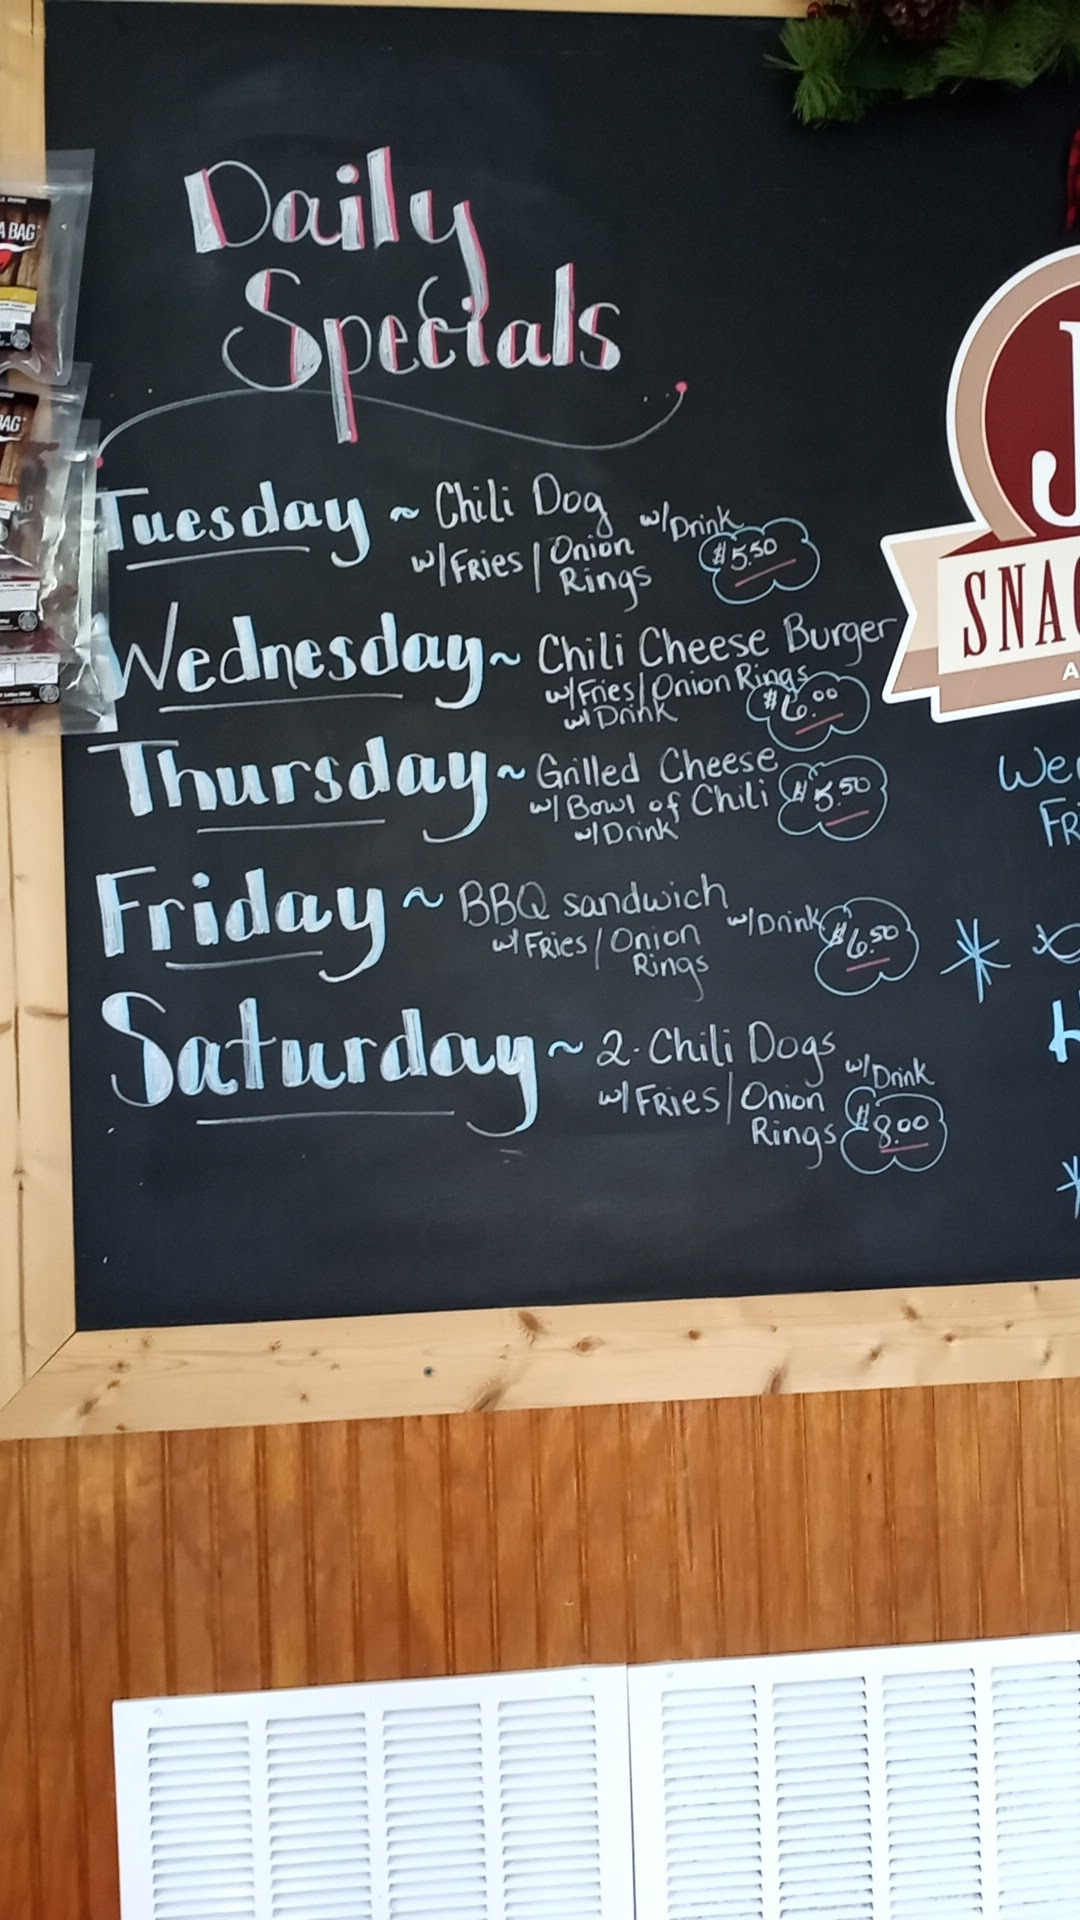 Daily
Specials
Tuesday ~ Chili Dog
w/Fries / Onion Rings w/Drink
$5.50
Wednesday ~ Chili Cheese Burger
w/Fries / Onion Rings
w/Drink
$6.00
Thursday ~ Grilled Cheese
w/Bowl of Chili
w/Drink
$5.50
Friday ~ BBQ sandwich
w/Fries / Onion Rings w/Drink
$6.50
Saturday ~ 2-Chili Dogs
w/Fries / Onion Rings w/Drink
$8.00
J
SNAC
A BAG
BAG